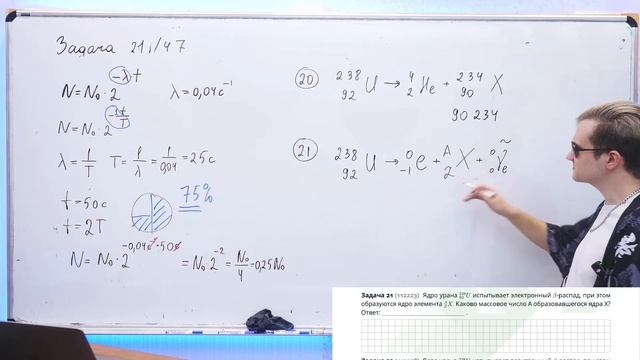 Задача 21 1/47
N = N₀ · 2^(-λt) λ = 0,04 c⁻¹
N = N₀ · 2^(-t/T)
λ = 1/T T = 1/λ = 1/0,04 = 25 c
t = 50 c
75%
t = 2T
N = N₀ · 2^(-0,04c⁻¹·50c) = N₀ · 2⁻² = N₀/4 = 0,25 N₀
20 ²³⁸₉₂U → ⁴₂He + ²³⁴₉₀X
90 234
21 ²³⁸₉₂U → ⁰₋₁e + ᴬ_Z X + ⁰₀ν̃e
Задача 21 (112223) Ядро урана U испытывает электронный β-распад, при этом
образуются ядро элемента X. Каково массовое число A образовавшегося ядра X?
Ответ: